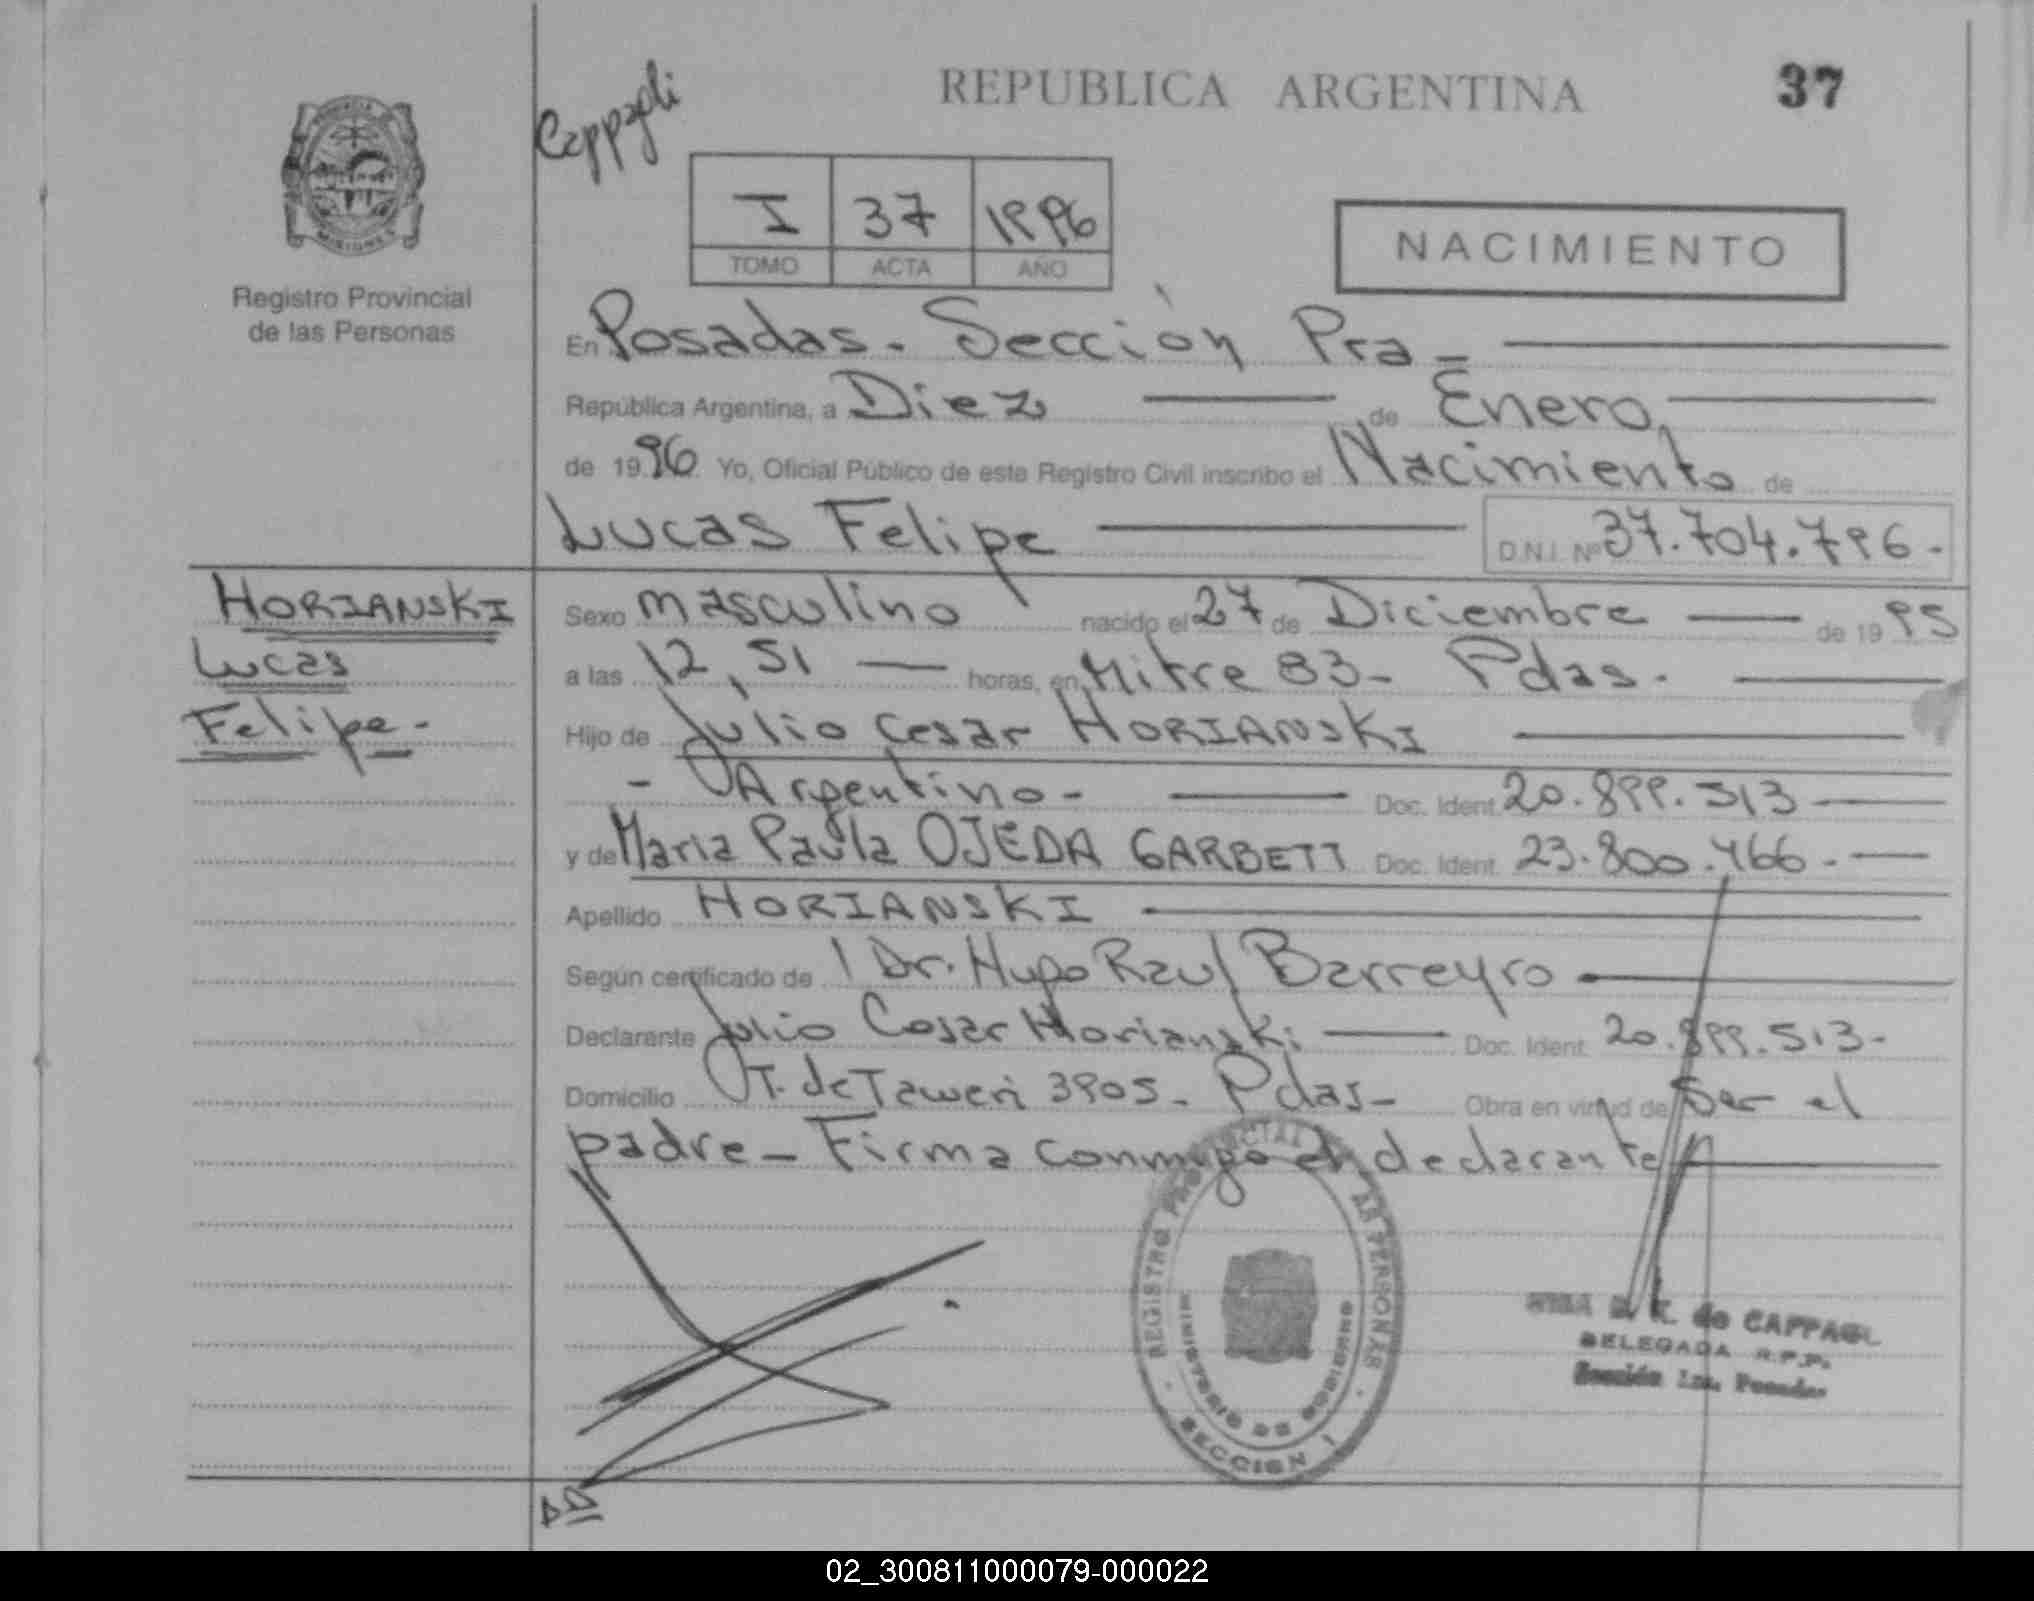 REPUBLICA ARGENTINA
37
Cappagli
I 37 1996
TOMO ACTA AÑO
NACIMIENTO
MISIONES
Registro Provincial
de las Personas
En Posadas. Sección Pra
República Argentina, a Diez de Enero
de 1996 Yo, Oficial Público de este Registro Civil inscribo el Nacimiento de
Lucas Felipe D.N.I. Nº 37.704.796.-
HORIANSKI
Lucas
Felipe-
Sexo masculino nacido el 27 de Diciembre de 1995
a las 12,51 horas, en Mitre 83- Pdas.
Hijo de Julio Cesar HORIANSKI
- Argentino- Doc. Ident. 20.899.513
y de Maria Paula OJEDA GARBETT Doc. Ident. 23.800.466.-
Apellido HORIANSKI
Según certificado de Dr. Hugo Raul Barreyro
Declarante Julio Cesar Horianski Doc. Ident. 20.899.513-
Domicilio T. de 3905- Pdas- Obra en virtud de Ser el
padre- Firma conmigo el declarante
REGISTRO PROVINCIAL DE LAS PERSONAS
MINISTERIO DE GOBIERNO
SECCION 1
de CAPPAGLI
DELEGADA R.P.P.
Sección 1ra. Posadas
02_300811000079-000022